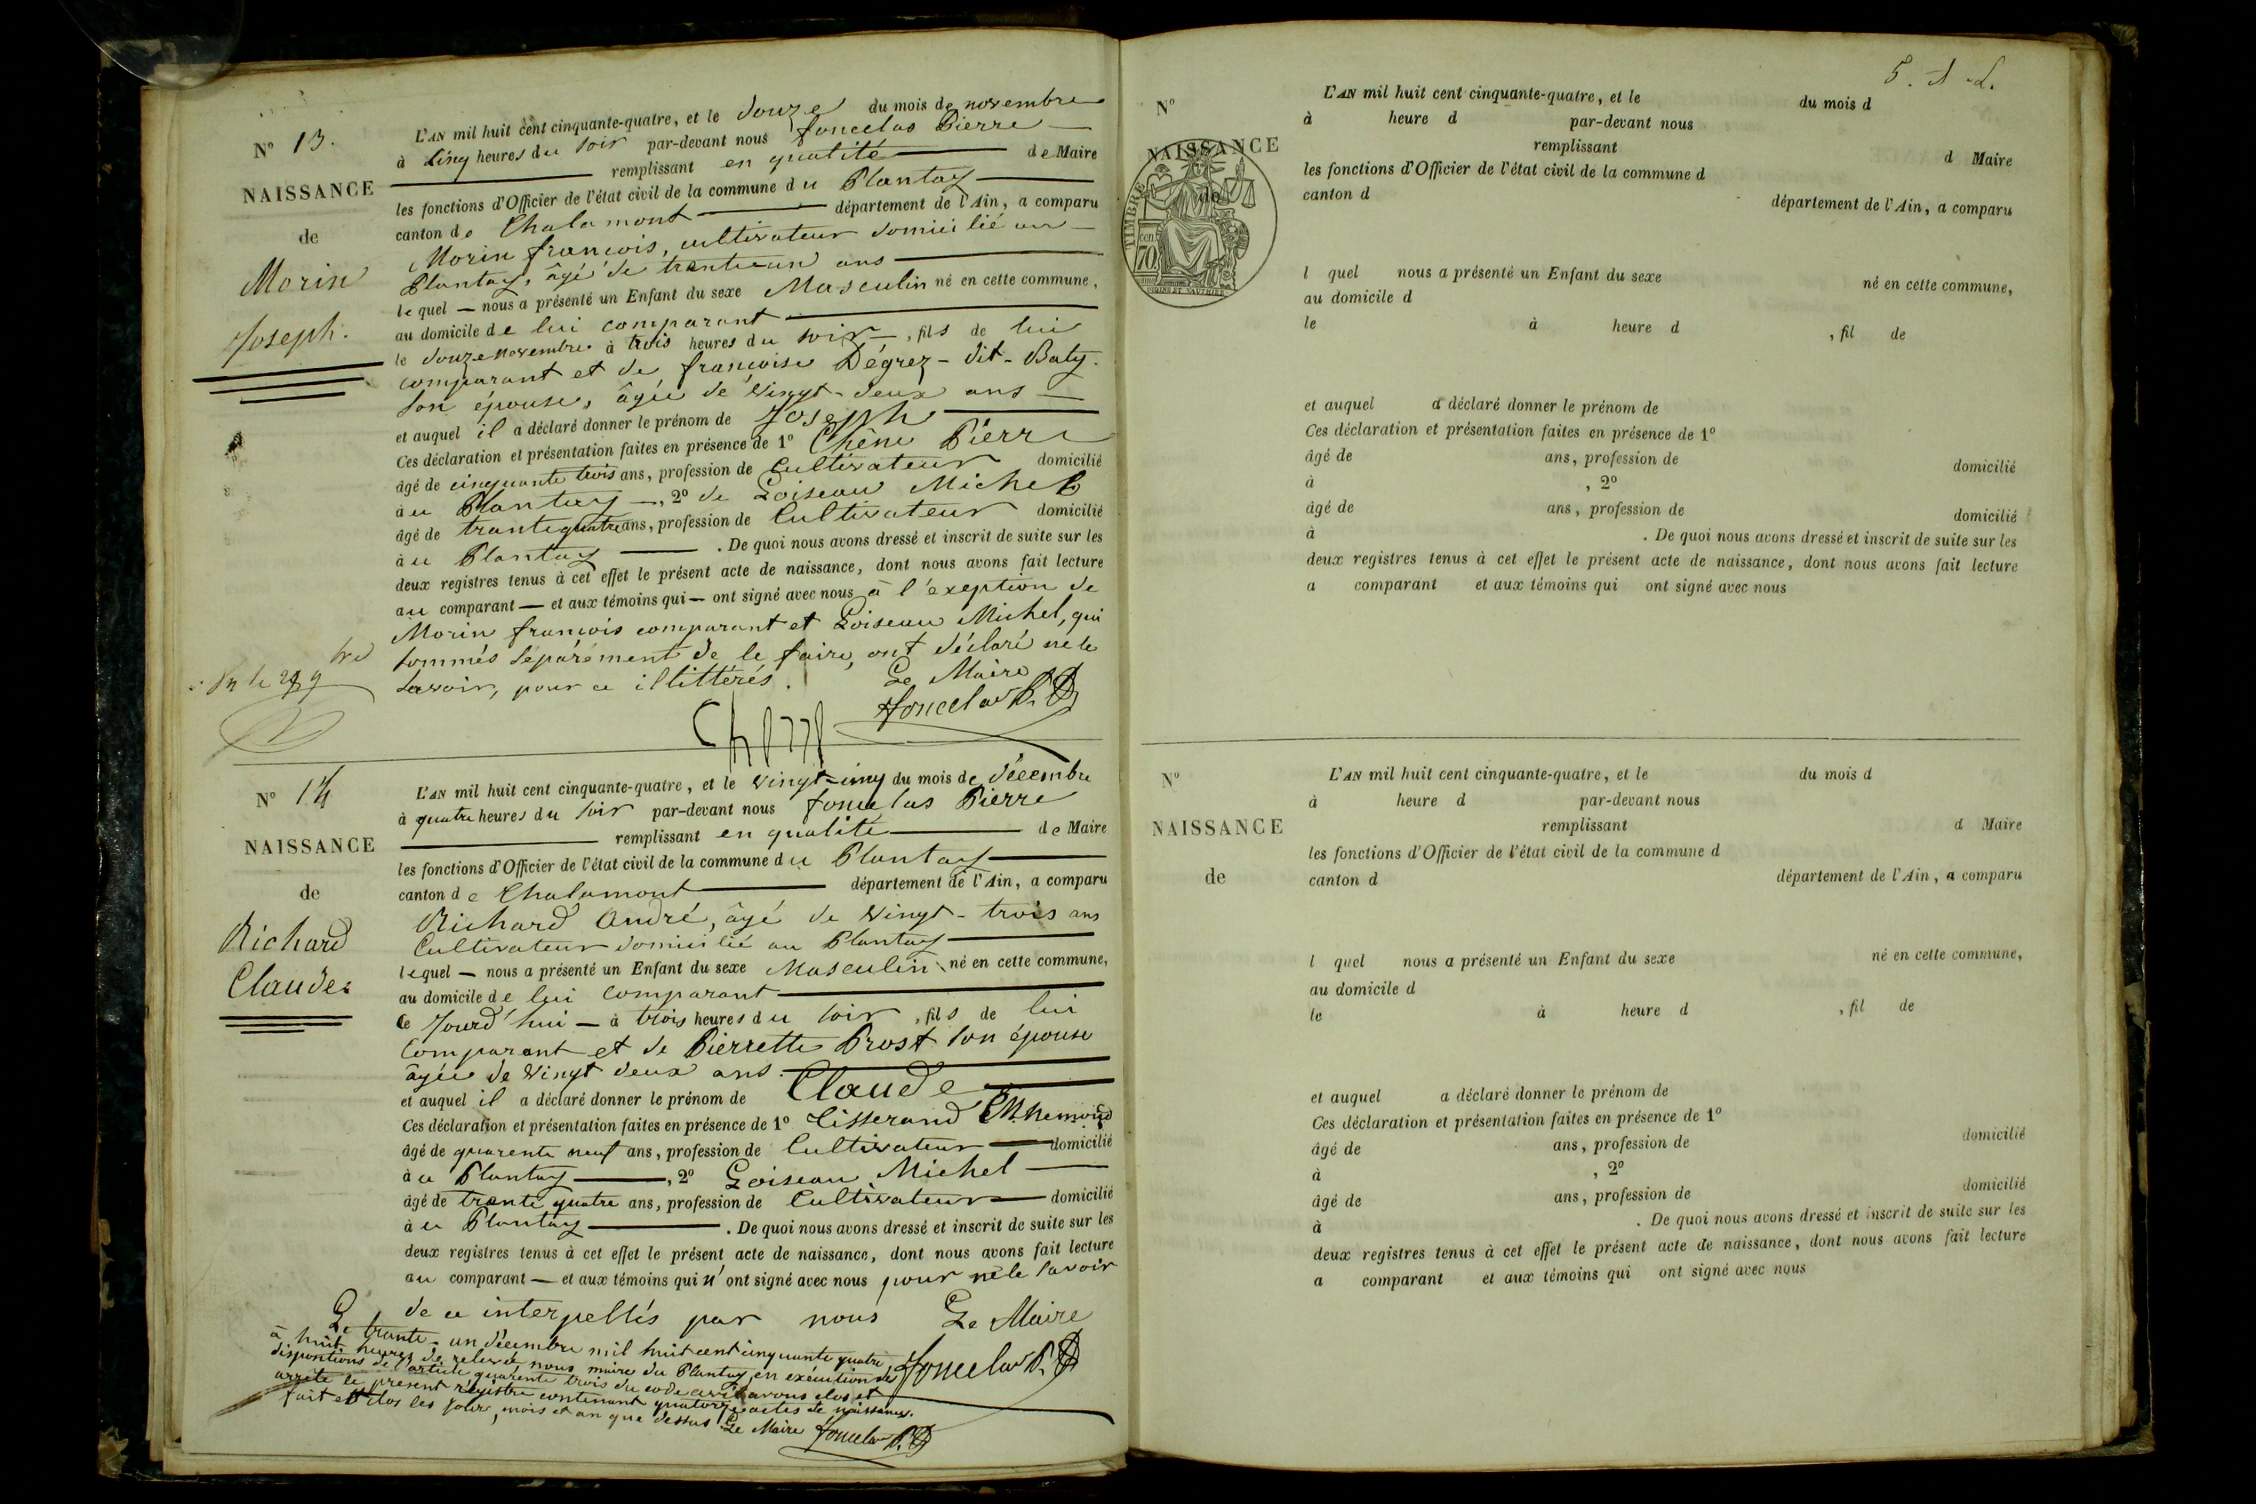 N° 13.
NAISSANCE
de
Morin
Joseph.
L'AN mil huit cent cinquante-quatre, et le douze du mois de novembre
à Cinq heures du soir par-devant nous Joncelas Pierre
remplissant en qualité de Maire
les fonctions d'Officier de l'état civil de la commune du Plantay
canton de Chalamont département de l'Ain, a comparu
Morin françois, cultivateur domicilié au
Plantay, âgé de trente-un ans
lequel — nous a présenté un Enfant du sexe Masculin né en cette commune,
au domicile de lui comparant
le douze novembre à trois heures du soir, fils de lui
comparant et de françoise Dégrez-dit-Baty.
son épouse, âgée de vingt-deux ans
et auquel il a déclaré donner le prénom de Joseph
Ces déclaration et présentation faites en présence de 1° Chêne Pierre
âgé de cinquante trois ans, profession de Cultivateur domicilié
au Plantay —, 2° de Loiseau Michel
âgé de trantequatre ans, profession de Cultivateur domicilié
au Plantay. De quoi nous avons dressé et inscrit de suite sur les
deux registres tenus à cet effet le présent acte de naissance, dont nous avons fait lecture
au comparant — et aux témoins qui — ont signé avec nous à l'exeption de
Morin françois comparant et Loiseau Michel, qui
sommés séparément de le faire, ont déclaré ne le
savoir, pour ce illittérés.
Le Maire
Joncelas P.
N° 14
NAISSANCE
de
Richard
Claude
L'AN mil huit cent cinquante-quatre, et le vingt-cinq du mois de décembre
à quatre heures du soir par-devant nous Joncelas Pierre
remplissant en qualité de Maire
les fonctions d'Officier de l'état civil de la commune du Plantay
canton de Chalamont département de l'Ain, a comparu
Richard André, âgé de vingt-trois ans
Cultivateur domicilié au Plantay
lequel — nous a présenté un Enfant du sexe Masculin né en cette commune,
au domicile de lui comparant
ce Jourd'hui — à trois heures du soir, fils de lui
comparant et de Pierrette Prost son épouse
âgée de vingt deux ans.
et auquel il a déclaré donner le prénom de Claude
Ces déclaration et présentation faites en présence de 1° Tisserand
âgé de quarente neuf ans, profession de Cultivateur domicilié
au Plantay, 2° Loiseau Michel
âgé de trente quatre ans, profession de Cultivateur domicilié
au Plantay. De quoi nous avons dressé et inscrit de suite sur les
deux registres tenus à cet effet le présent acte de naissance, dont nous avons fait lecture
au comparant — et aux témoins qui n'ont signé avec nous pour ne le savoir
de ce interpellés par nous Le Maire
Joncelas P.
Le trante-un décembre mil huit cent cinquante quatre,
à huit heures de relevée nous maire du Plantay, en exécution de
dispositions de l'article quarente trois du code civil avons clos et
arrêté le présent régistre contenant quatorze actes de naissances.
fait et clos les jour, mois et an que dessus. Le Maire Joncelas P.
5.
N°
NAISSANCE
de
TIMBRE
cen
70
L'AN mil huit cent cinquante-quatre, et le du mois d
à heure d par-devant nous
remplissant d Maire
les fonctions d'Officier de l'état civil de la commune d
canton d département de l'Ain, a comparu
l quel nous a présenté un Enfant du sexe né en cette commune,
au domicile d
le à heure d , fil de
et auquel a déclaré donner le prénom de
Ces déclaration et présentation faites en présence de 1°
âgé de ans, profession de domicilié
à , 2°
âgé de ans, profession de domicilié
à . De quoi nous avons dressé et inscrit de suite sur les
deux registres tenus à cet effet le présent acte de naissance, dont nous avons fait lecture
a comparant et aux témoins qui ont signé avec nous
N°
NAISSANCE
de
L'AN mil huit cent cinquante-quatre, et le du mois d
à heure d par-devant nous
remplissant d Maire
les fonctions d'Officier de l'état civil de la commune d
canton d département de l'Ain, a comparu
l quel nous a présenté un Enfant du sexe né en cette commune,
au domicile d
le à heure d , fil de
et auquel a déclaré donner le prénom de
Ces déclaration et présentation faites en présence de 1°
âgé de ans, profession de domicilié
à , 2°
âgé de ans, profession de domicilié
à . De quoi nous avons dressé et inscrit de suite sur les
deux registres tenus à cet effet le présent acte de naissance, dont nous avons fait lecture
a comparant et aux témoins qui ont signé avec nous